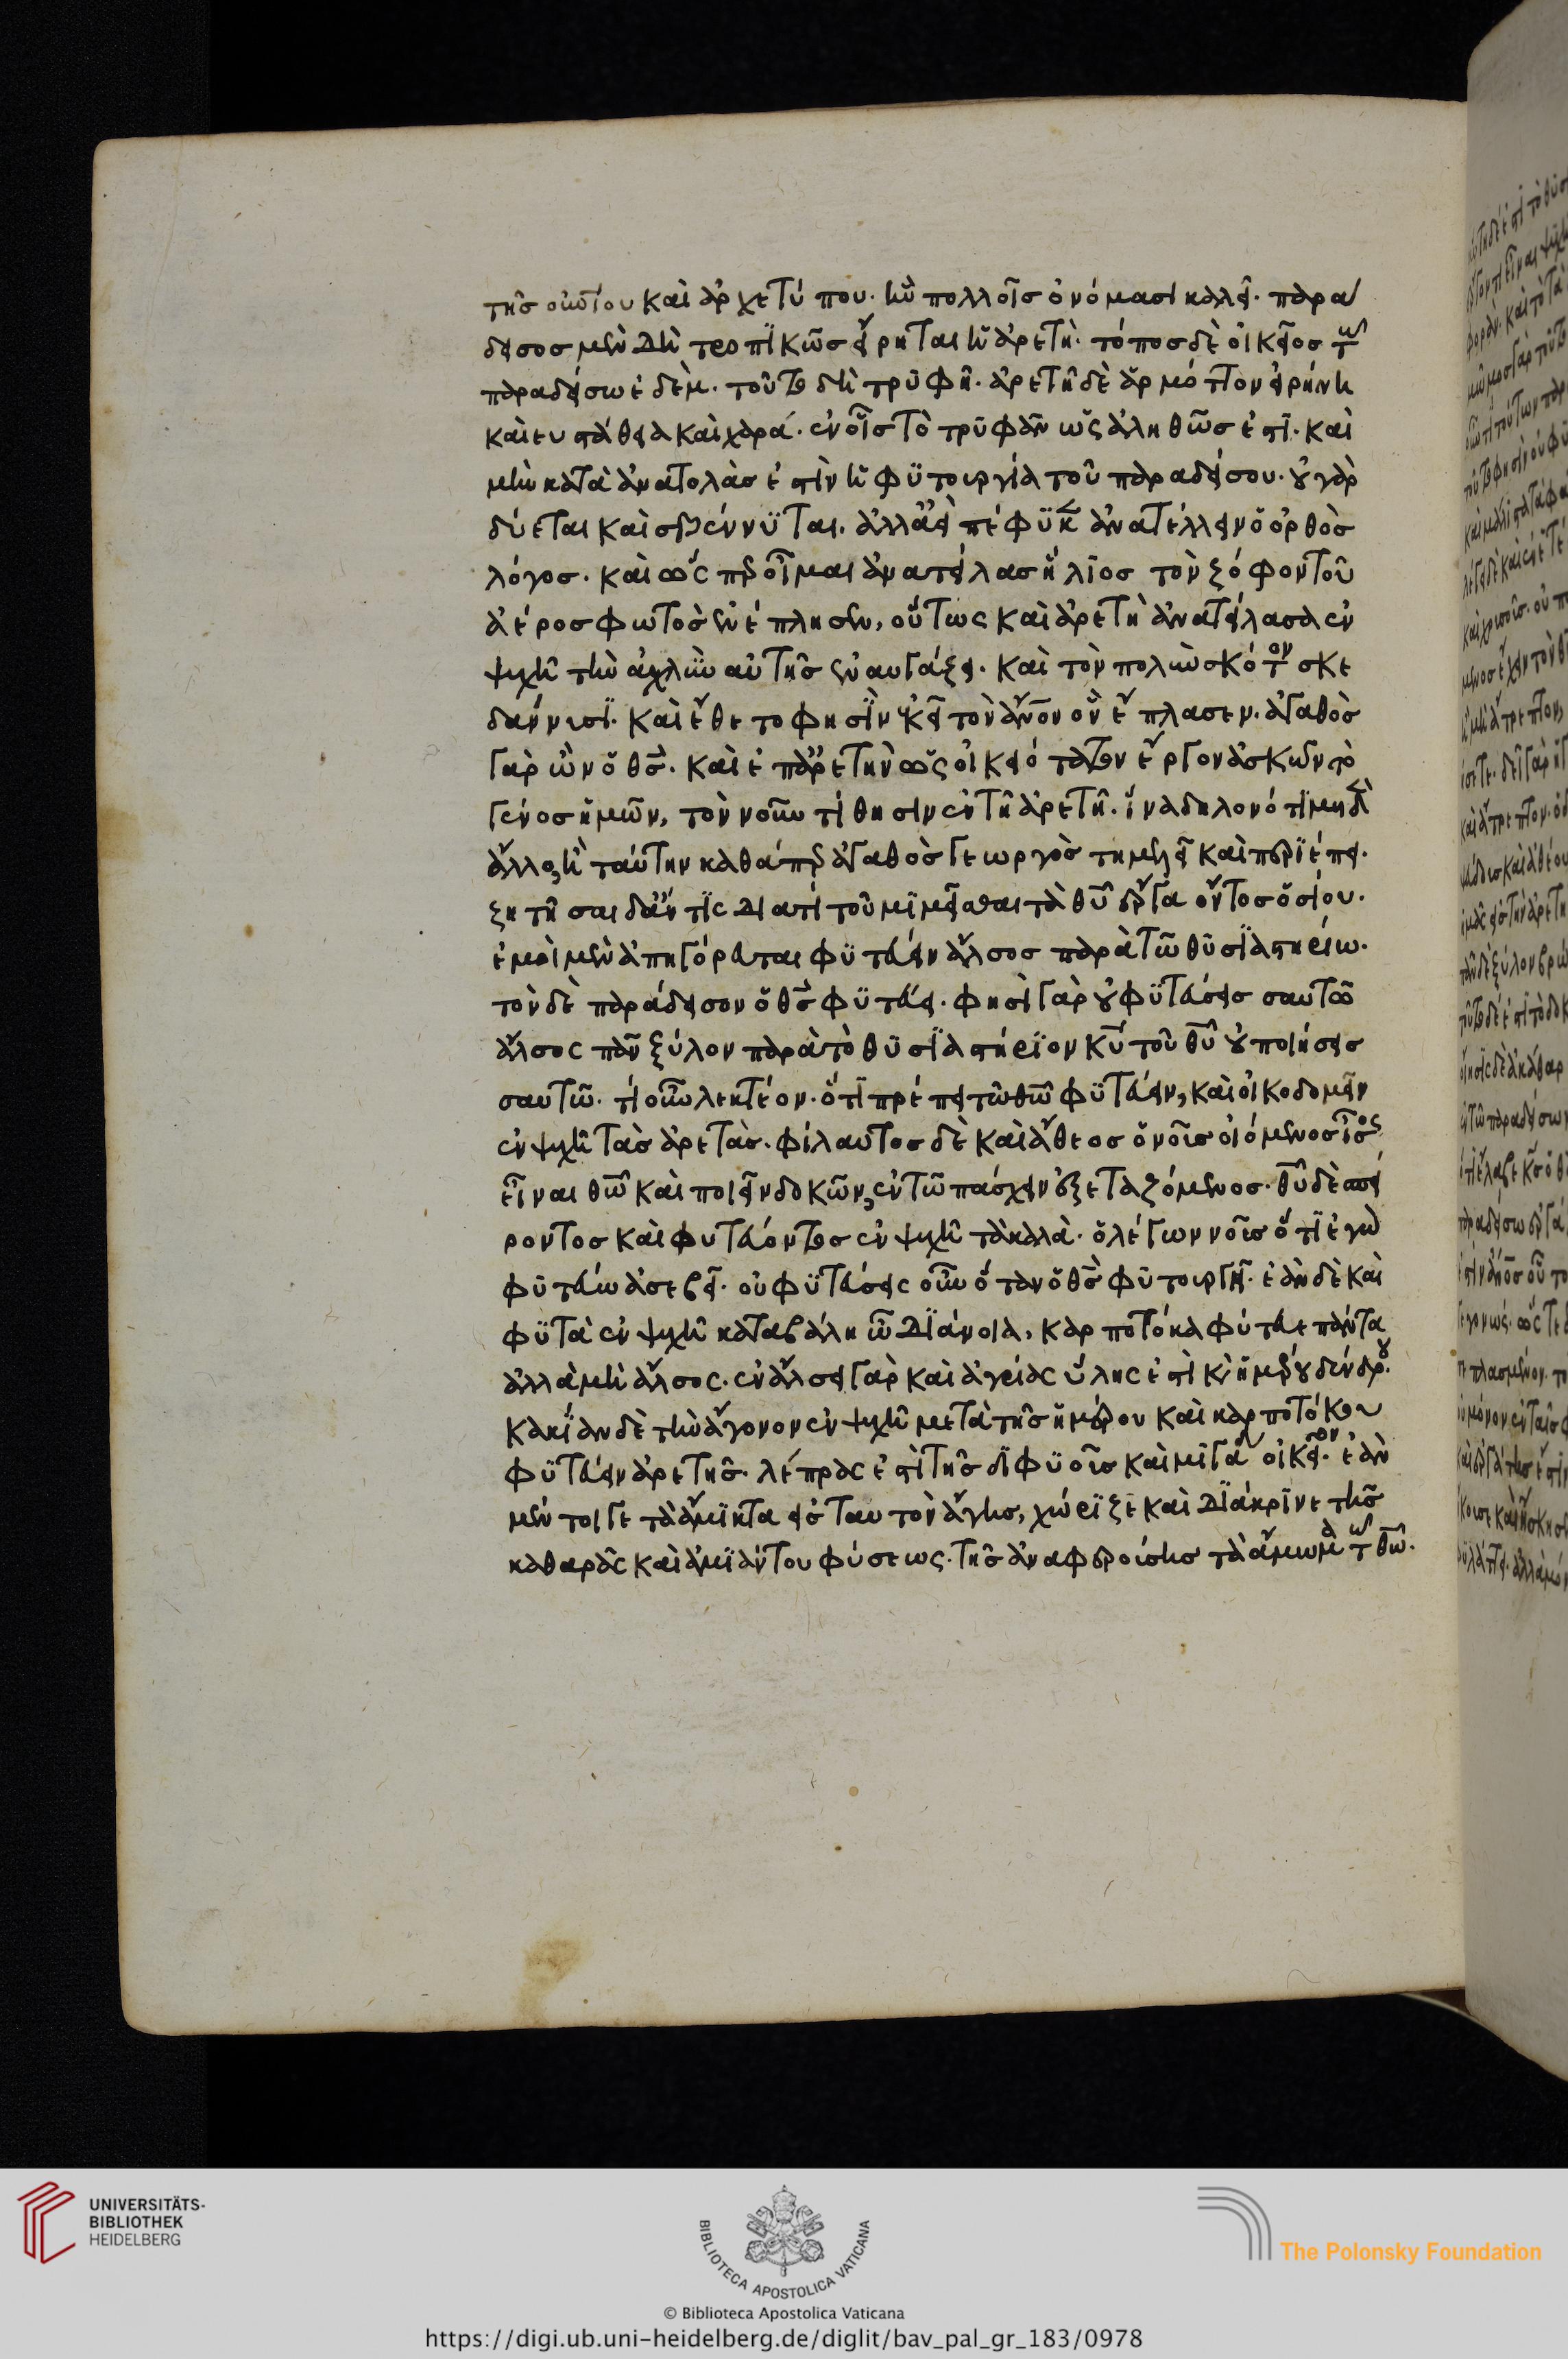 τῆς οὐρανίου καὶ ἀρχετύπου. ἣν πολλοῖς ὀνόμασι καλεῖ. παρα
δεισος μὲν δὴ τροπικῶς εἴρηται ἡ ἀρετή. τόπος δὲ οἰκεῖος τῶ
παραδείσω ἐδέμ. τοῦτο δὴ τρυφή. ἀρετῆ δὲ ἁρμόττον εἰρήνη
καὶ εὐπάθεια καὶ χαρά. ἐν οἷς τὸ τρυφᾶν ὡς ἀληθῶς ἐστί. καὶ
μὴν κατὰ ἀνατολάς ἐστιν ἡ φυτουργία τοῦ παραδείσου. οὐ γὰρ
δύεται καὶ σβέννυται. ἀλλ' ἀεὶ πέφυκεν ἀνατέλλειν ὁ ὀρθὸς
λόγος. καὶ ὥσπερ οἶμαι ἀνατείλας ἥλιος τὸν ζόφον τοῦ
ἀέρος φωτὸς ἐνέπλησεν, οὕτως καὶ ἀρετὴ ἀνατείλασα ἐν
ψυχῆ τὴν ἀχλὺν αὐτῆς ἐναυγάζει. καὶ τὸν πολὺν σκότον σκε
δάννυσι. καὶ ἔθετο φησὶν ἐκεῖ τὸν ἄνον ὃν ἔπλασεν. ἀγαθὸς
γὰρ ὢν ὁ θς. καὶ ἐπ' ἀρετὴν ὡς οἰκειότατον ἔργον ἀσκῶν τὸ
γένος ἡμῶν, τὸν νοῦν τίθησιν ἐν τῆ ἀρετῆ. ἵνα δηλονότι μηδὲν
ἄλλο, ἢ ταύτην καθάπερ ἀγαθὸς γεωργὸς τημελεῖ καὶ περιέπει.
ζητήσαι δ' ἄν τις διατί τοῦ μιμεῖσθαι τὰ θυ ἔργα ὄντος ὁσίου.
ἐμοὶ μὲν ἀπηγόρευται φυτεύειν ἄλσος παρὰ τῶ θυσιαστηρίω.
τὸν δὲ παράδεισον ὁ θς φυτεύει. φησὶ γὰρ οὐ φυτεύσεις σαυτῶ
ἄλσος πᾶν ξύλον παρὰ τὸ θυσιαστήριον κυ τοῦ θυ οὐ ποιήσεις
σαυτῶ. τί οὖν λεκτέον. ὅτι πρέπει τῶ θω φυτεύειν, καὶ οἰκοδομεῖν
ἐν ψυχῆ τὰς ἀρετάς. φίλαυτος δὲ καὶ ἄθεος ὁ νοῦς οἰόμενος ἴσος
εἶναι θω καὶ ποιεῖν δοκῶν, ἐν τῶ πάσχειν ἐξεταζόμενος. θυ δὲ σπεί
ροντος καὶ φυτεύοντος ἐν ψυχῆ τὰ καλὰ. ὁ λέγων νοῦς ὅτι ἐγὼ
φυτεύω ἀσεβεῖ. οὐ φυτεύσεις οὖν ὅταν ὁ θς φυτουργῆ. ἐὰν δὲ καὶ
φυτὰ ἐν ψυχῆ καταβάλη ὦ διάνοια, καρποτόκα φύτευε πάντα
ἀλλὰ μὴ ἄλσος. ἐν ἄλσει γὰρ καὶ ἀγρίας ὕλης ἐστὶ καὶ ἡμέρου δένδρου.
κακίαν δὲ τὴν ἄγονον ἐν ψυχῆ μετὰ τῆς ἡμέρου καὶ καρποτόκου
φυτεύειν ἀρετῆς. λέπρας ἐστὶ τῆς διφυοῦς καὶ μιγάδος οἰκεῖον. ἐὰν
μέντοιγε τὰ ἄμικτα εἰς ταυτὸν ἄγης, χώριζε καὶ διάκρινε τῆς
καθαρᾶς καὶ ἀμιάντου φύσεως. τῆς ἀναφερούσης τὰ ἄμωμα τῶ θω.
UNIVERSITÄTS-
BIBLIOTHEK
HEIDELBERG
BIBLIOTECA APOSTOLICA VATICANA
The Polonsky Foundation
© Biblioteca Apostolica Vaticana
https://digi.ub.uni-heidelberg.de/diglit/bav_pal_gr_183/0978